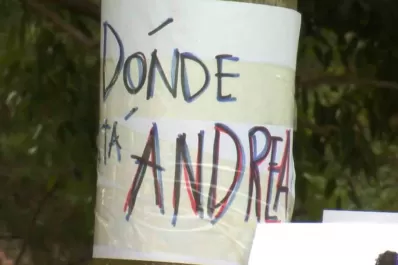 DÓNDE
TÁ ANDREA